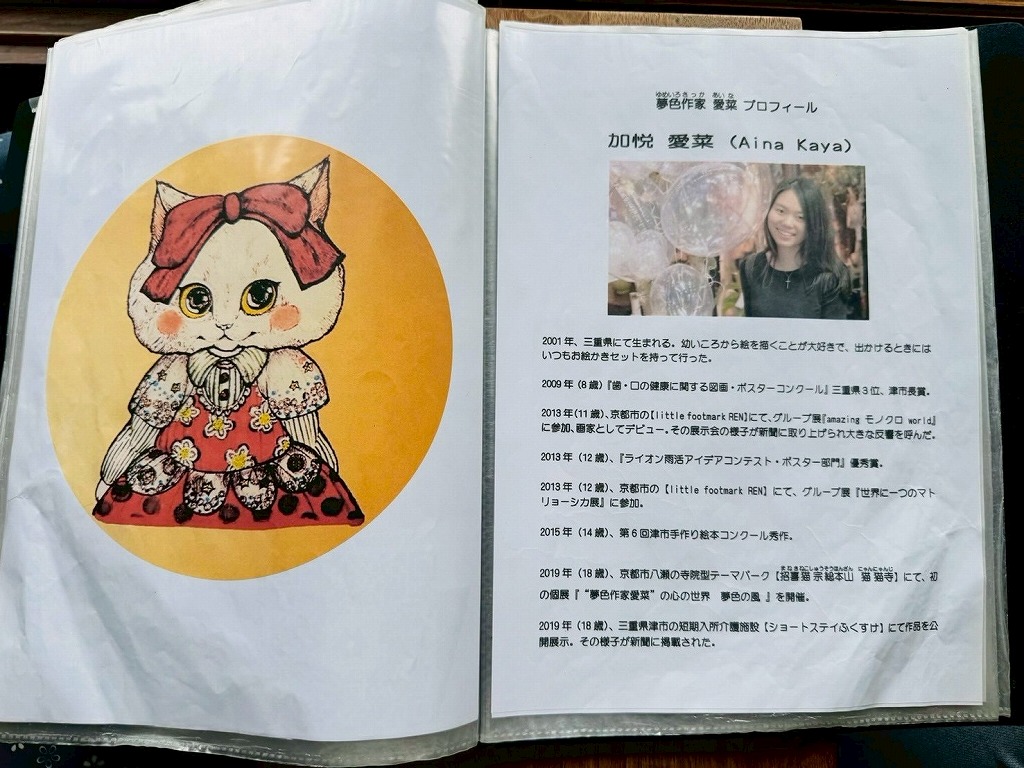 ゆめいろさっか あいな
夢色作家 愛菜 プロフィール
加悦 愛菜 (Aina Kaya)
2001年、三重県にて生まれる。幼いころから絵を描くことが大好きで、出かけるときには
いつもお絵かきセットを持って行った。
2009年(8歳)『歯・口の健康に関する図画・ポスターコンクール』三重県3位、津市長賞。
2013年(11歳)、京都市の【little footmark REN】にて、グループ展『amazing モノクロ world』
に参加、画家としてデビュー。その展示会の様子が新聞に取り上げられ大きな反響を呼んだ。
2013年(12歳)、『ライオン雨活アイデアコンテスト・ポスター部門』優秀賞。
2013年(12歳)、京都市の【little footmark REN】にて、グループ展『世界に一つのマト
リョーシカ展』に参加。
2015年(14歳)、第6回津市手作り絵本コンクール秀作。
まねきねこしゅうそうほんざん にゃんにゃんじ
2019年(18歳)、京都市八瀬の寺院型テーマパーク【招喜猫宗総本山 猫猫寺】にて、初
の個展『“夢色作家愛菜”の心の世界 夢色の風』を開催。
2019年(18歳)、三重県津市の短期入所介護施設【ショートステイふくすけ】にて作品を公
開展示。その様子が新聞に掲載された。